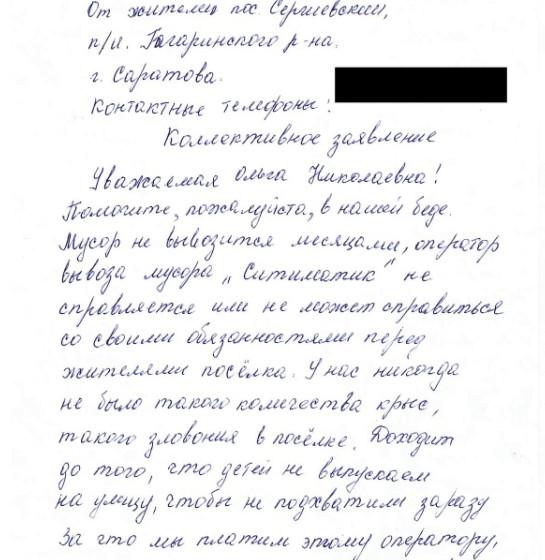 От жителей пос. Сергиевский,
п/и. Гагаринского р-на.
г. Саратова.
Контактные телефоны:
Коллективное заявление
Уважаемая Ольга Николаевна!
Помогите, пожалуйста, в нашей беде.
Мусор не вывозится месяцами, оператор
вывоза мусора „Ситиматик" не
справляется или не может справиться
со своими обязанностями перед
жителями посёлка. У нас никогда
не было такого количества крыс,
такого зловония в посёлке. Доходит
до того, что детей не выпускаем
на улицу, чтобы не подхватили заразу
За что мы платим этому оператору,